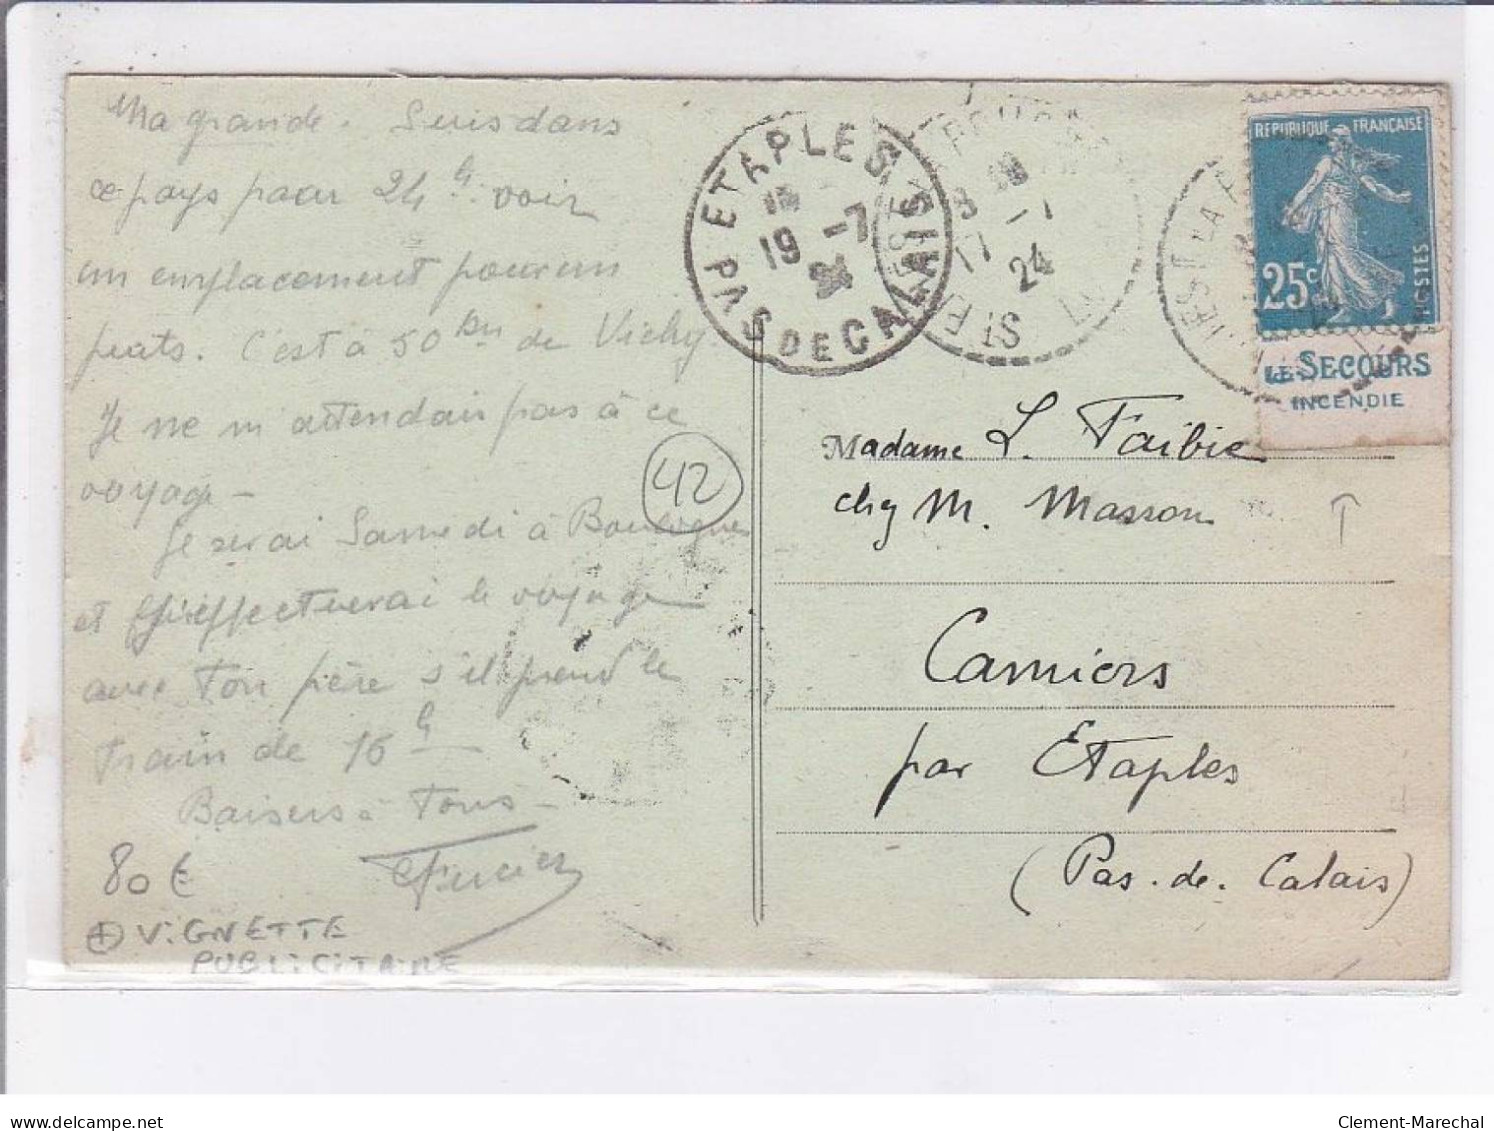 Ma grande. Suis dans
ce pays pour 24 h. voir
un emplacement pour un
prats. C'est à 50 km de Vichy.
Je ne m'attendais pas à ce
voyage -
Je serai Samedi à Boulogne
et j'effectuerai le voyage
avec ton père s'il prend le
train de 16 h
Baisers à Tous -
42
80 €
VIGNETTE
PUBLICITAIRE
ETAPLES
19 -7
PAS DE CALAIS
17 -7
24
ST
RÉPUBLIQUE FRANÇAISE
25c
POSTES
LE SECOURS
INCENDIE
Madame L. Faibie
chez M. Masson
Camiers
par Etaples
(Pas-de-Calais)
delcampe.net
Clement-Marechal